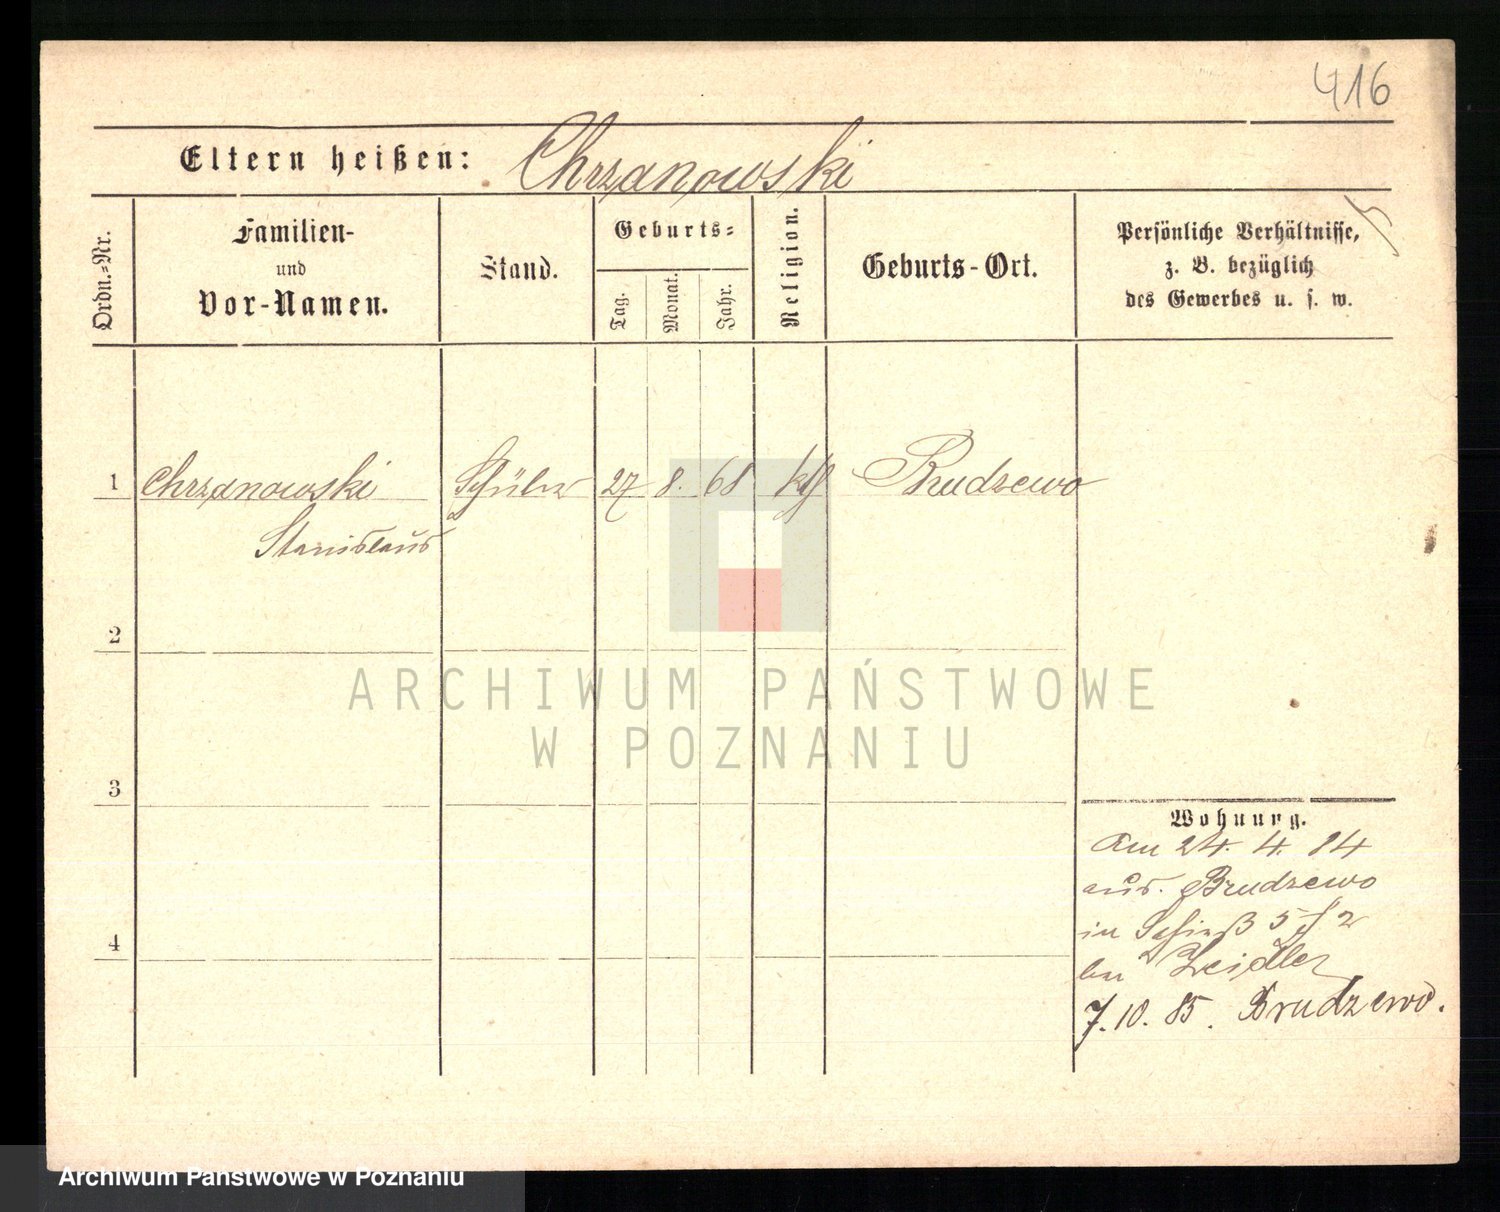 416
Eltern heißen: Chrzanowski
Ordn.=Nr.
Familien-
und
Vor-Namen.
Stand.
Geburts=
Tag.
Monat.
Jahr.
Religion.
Geburts-Ort.
Persönliche Verhältnisse,
z. B. bezüglich
des Gewerbes u. s. w.
1 Chrzanowski Schüler 27 8. 68 kth Brudzewo
Stanislaus
2
3
4
Wohnung.
Am 24. 4. 84
aus. Brudzewo
in Schieß 5 / 2
bei Zeidler
7. 10. 85. Brudzewo.
ARCHIWUM PAŃSTWOWE
W POZNANIU
Archiwum Państwowe w Poznaniu